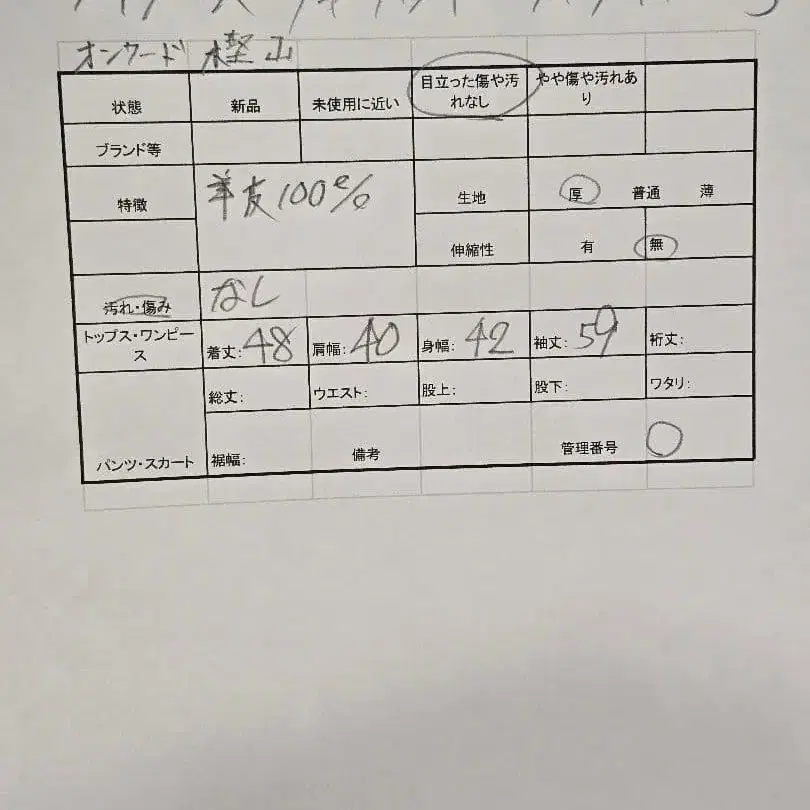 オンワード 樫山
状態 新品 未使用に近い 目立った傷や汚れなし やや傷や汚れあり
ブランド等
特徴 羊皮100% 生地 厚 普通 薄
伸縮性 有 無
汚れ・傷み なし
トップス・ワンピース 着丈:48 肩幅:40 身幅:42 袖丈:59 裄丈:
総丈: ウエスト: 股上: 股下: ワタリ:
パンツ・スカート 裾幅: 備考 管理番号